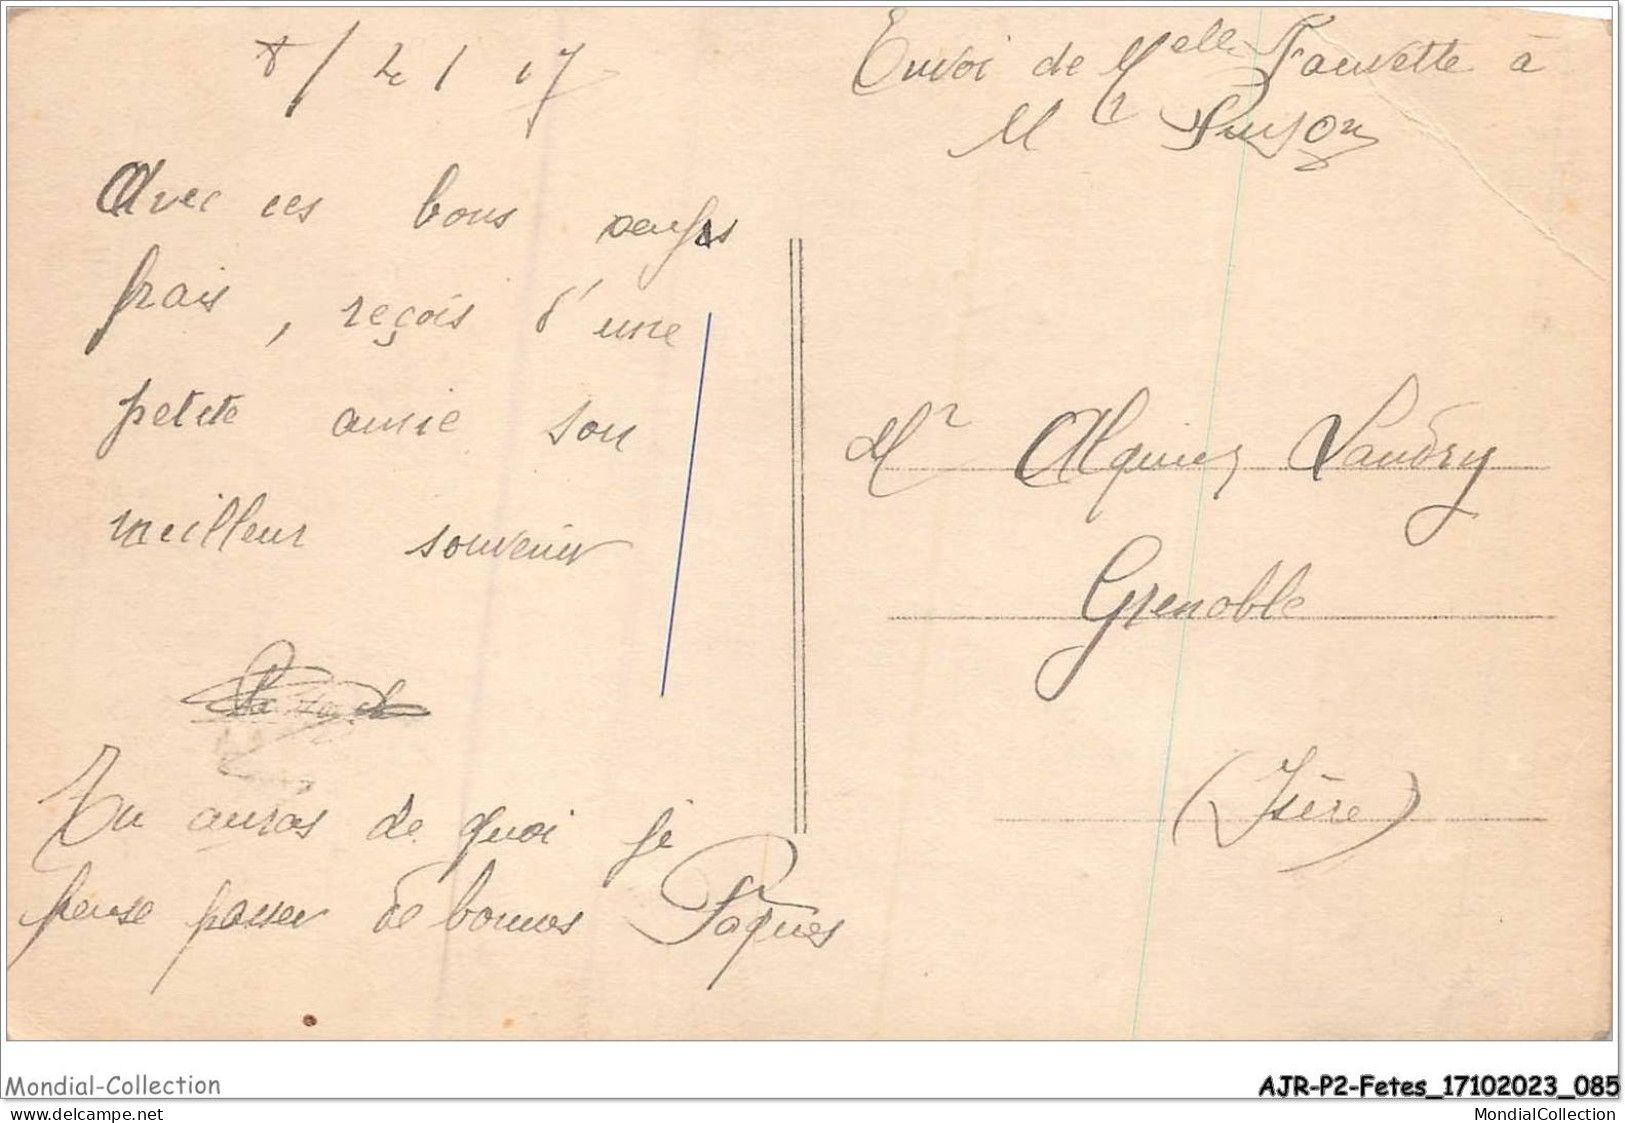 8/4/17
Avec ces bons oeufs
frais, reçois d'une
petite amie son
meilleur souvenir
Tu auras de quoi je
pense passer de bonnes Pâques
Envoi de Melle Fauvette à
Mr Pinson
Mr Alquier Landry
Grenoble
(Isère)
Mondial-Collection
AJR-P2-Fetes_17102023_085
MondialCollection.net
MondialCollection